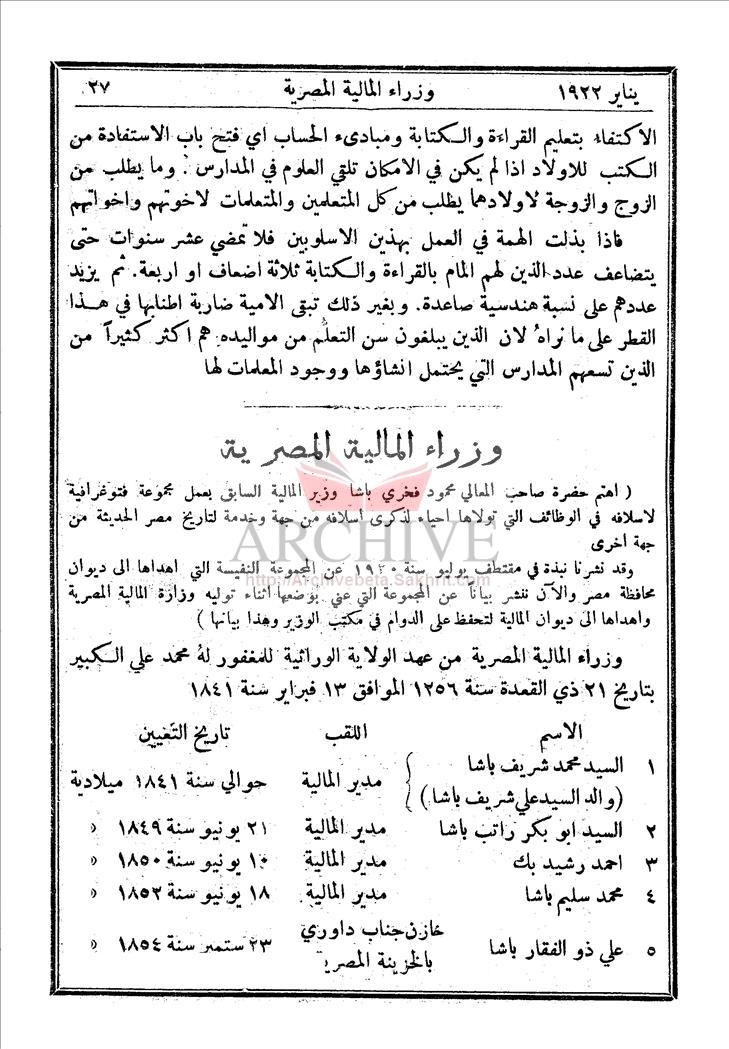 يناير ١٩٢٢ وزراء المالية المصرية ٢٧
الاكتفاء بتعليم القراءة والكتابة ومبادىء الحساب اي فتح باب الاستفادة من
الكتب للاولاد اذا لم يكن في الامكان تلقي العلوم في المدارس . وما يطلب من
الزوج والزوجة لاولادهما يطلب من كل المتعلمين والمتعلمات لاخوتهم واخواتهم
فاذا بذلت الهمة في العمل بهذين الاسلوبين فلا تمضي عشر سنوات حتى
يتضاعف عدد الذين لهم المام بالقراءة والكتابة ثلاثة اضعاف او اربعة. ثم يزيد
عددهم على نسبة هندسية صاعدة. وبغير ذلك تبقى الامية ضاربة اطنابها في هذا
القطر على ما نراهُ لان الذين يبلغون سن التعلُّم من مواليده هم اكثر كثيراً من
الذين تسعهم المدارس التي يحتمل انشاؤها ووجود المعلمات لها
وزراء المالية المصرية
( اهتم حضرة صاحب المعالي محمود فخري باشا وزير المالية السابق بعمل مجموعة فتوغرافية
لاسلافه في الوظائف التي تولاها احياء لذكرى اسلافه من جهة وخدمة لتاريخ مصر الحديثة من
جهة اخرى
وقد نشرنا نبذة في مقتطف يوليو سنة ١٩٢٠ عن المجموعة النفيسة التي اهداها الى ديوان
محافظة مصر والآن ننشر بياناً عن المجموعة التي عني بوضعها اثناء توليه وزارة المالية المصرية
واهداها الى ديوان المالية لتحفظ على الدوام في مكتب الوزير وهذا بيانها )
ARCHIVE
http://Archivebeta.Sakhrit.com
وزراء المالية المصرية من عهد الولاية الوراثية للمغفور لهُ محمد علي الكبير
بتاريخ ٢١ ذي القعدة سنة ١٢٥٦ الموافق ١٣ فبراير سنة ١٨٤١
الاسم اللقب تاريخ التعيين
١ السيد محمد شريف باشا
(والد السيد علي شريف باشا) مدير المالية حوالي سنة ١٨٤١ ميلادية
٢ السيد ابو بكر راتب باشا مدير المالية ٢١ يونيو سنة ١٨٤٩ »
٣ احمد رشيد بك مدير المالية يونيو سنة ١٨٥٠ »
٤ محمد سليم باشا مدير المالية ١٨ يونيو سنة ١٨٥٢ »
٥ علي ذو الفقار باشا خازن جناب داوري
بالخزينة المصرية ٢٣ ستمبر سنة ١٨٥٤ »